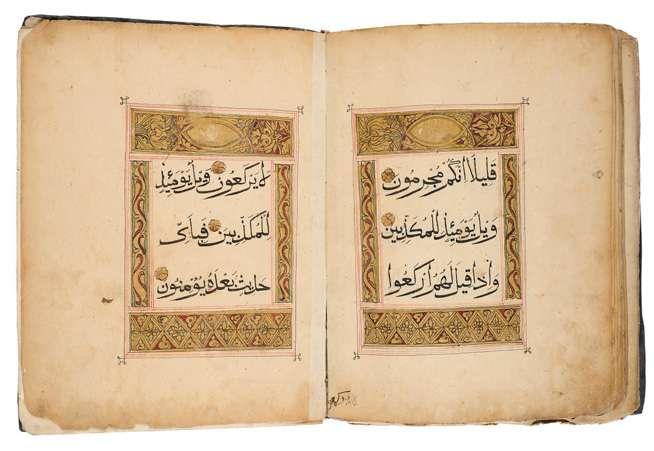 قليلا انكم مجرمون
ويل يومئذ للمكذبين
واذا قيل لهم اركعوا
لا يركعون ويل يومئذ
للمكذبين فباي
حديث بعده يومنون